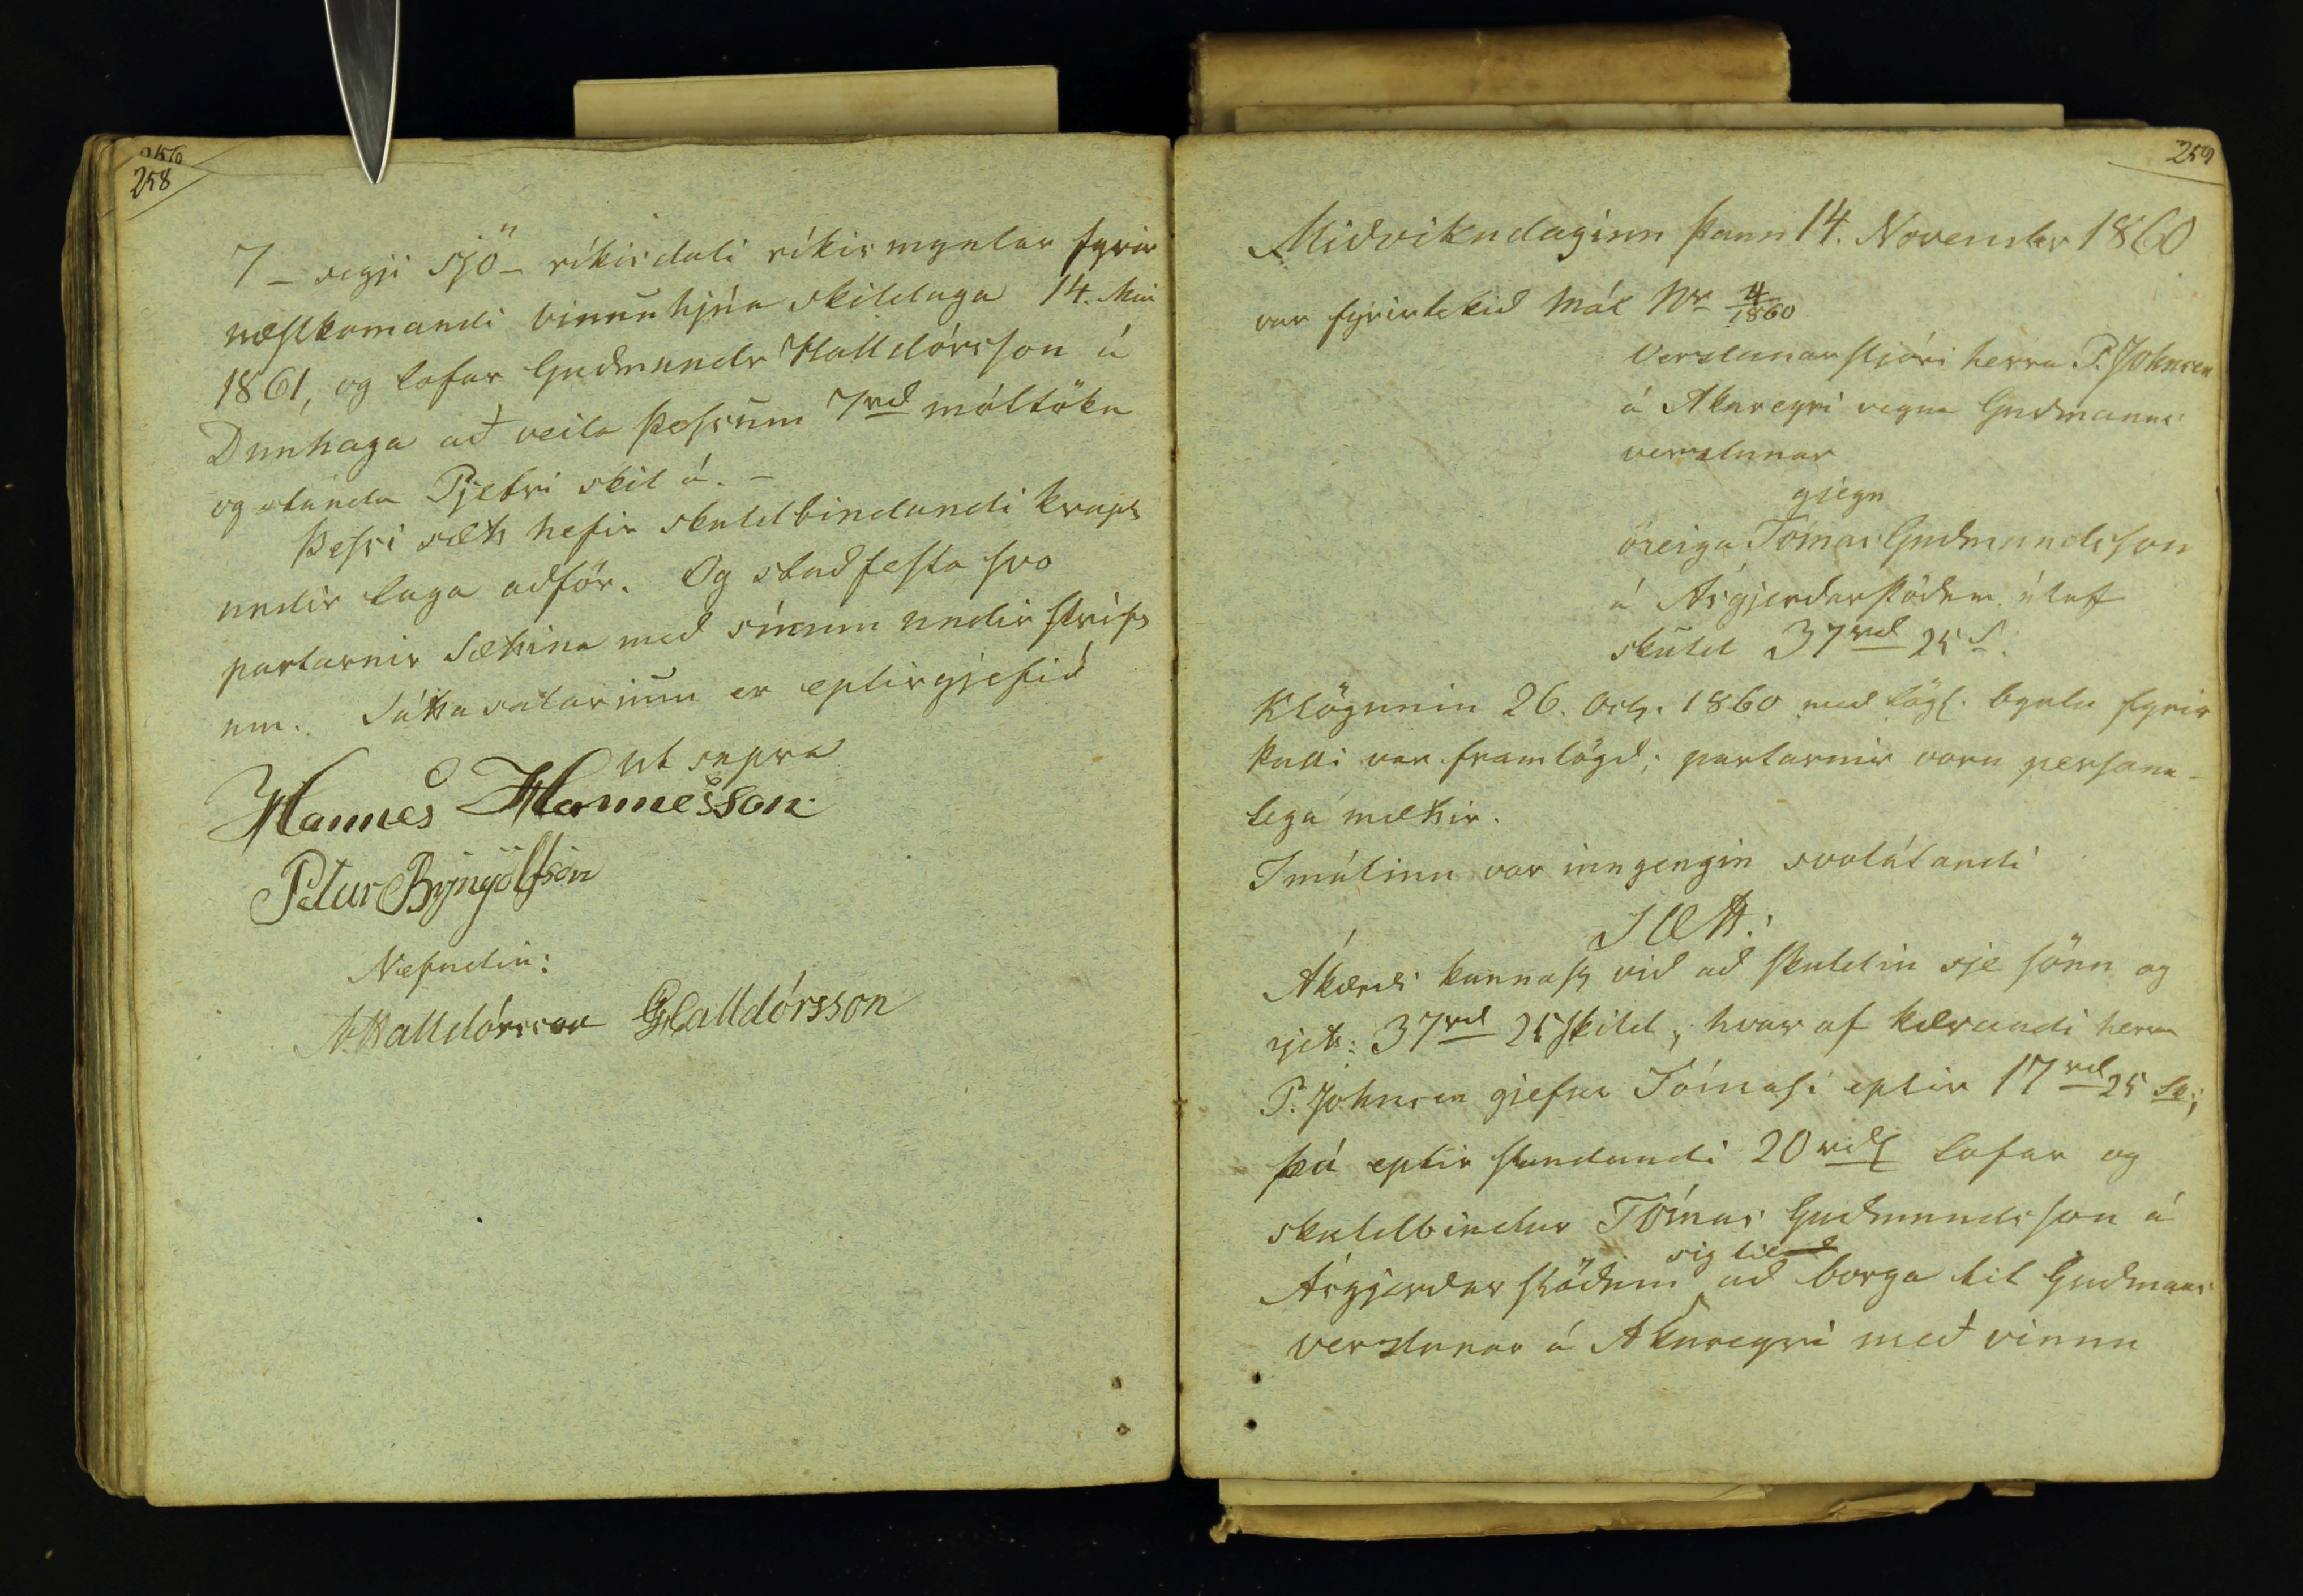 258
7 - segji sjö - ríkisdali ríkismyntar fyrir
næstkomandi vinnuhjúa skildaga 14. Mai
1861, og lofar Guðmundr Halldórsson á
Dunhaga að veita þessum 7rd móttöku
og standa Pjetri skil á. -
Þessi sætt hefir skuldbindandi krapt
undir laga aðför. Og staðfesta svo
partarnir sættina með sínum undirskript
um. Sáttasalarium er eptirgjefið
ut supra
Hannes Hannesson
Petur Brynjólfsson
Nefndin:
Halldórsson GHalldórsson
259
Miðvikudaginn þann 14. November 1860
var fyrirtekið Mál No 4/1860
Verslunarstjóri herra P. Johnsen
á Akureyri vegna Guðmanns
verzlunar
gjegn
öreiga Tómas Guðmundsson
á Ásgjerðarstöðum útaf
skuld 37rd 25 s.
Klögunin 26. Oct. 1860 með lögl. bygln fyrir
kalli var framlögð; partarnir voru persónu-
lega mættir.
I málinu var inngengin svolátandi
Sætt:
Ákærði kannast við að skuldin sje sönn og
rjett: 37rd 25 skild, hvar af kærandi herra
P. Johnsen gjefur Tómasi eptir 17rd 25 sk;
þá eptir standandi 20 rdl lofar og
skuldbindur Tómas Guðmundsson á
Ásgjerðarstöðum sig til að borga til Guðmans
verzlunar á Akureyri með vinnu